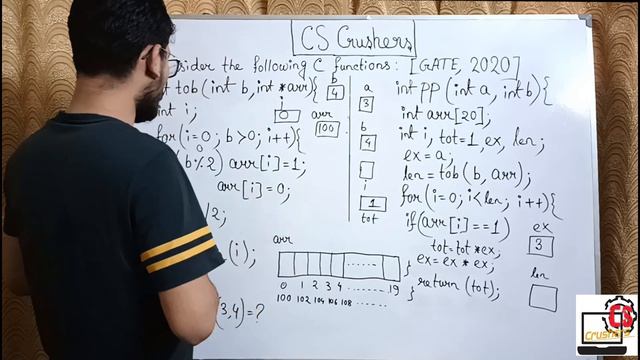 CS Crushers
sider the following C functions: [GATE, 2020]
t tob (int b, int *arr){
int i;
for(i=0; b>0; i++){
(b%2) arr[i]=1;
arr[i]=0;
/2;
(i);
(3,4)=?
i
0
b
4
arr
100
a
3
b
4
i
1
tot
int pp (int a, int b){
int arr[20];
int i, tot=1, ex, len;
ex=a;
len=tob(b, arr);
for(i=0; i<len; i++){
if(arr[i]==1)
tot=tot*ex;
ex=ex*ex;
}
return (tot);
}
ex
3
len
arr
0 1 2 3 4 ........ 19
100 102 104 106 108 ......
CS
Crushers